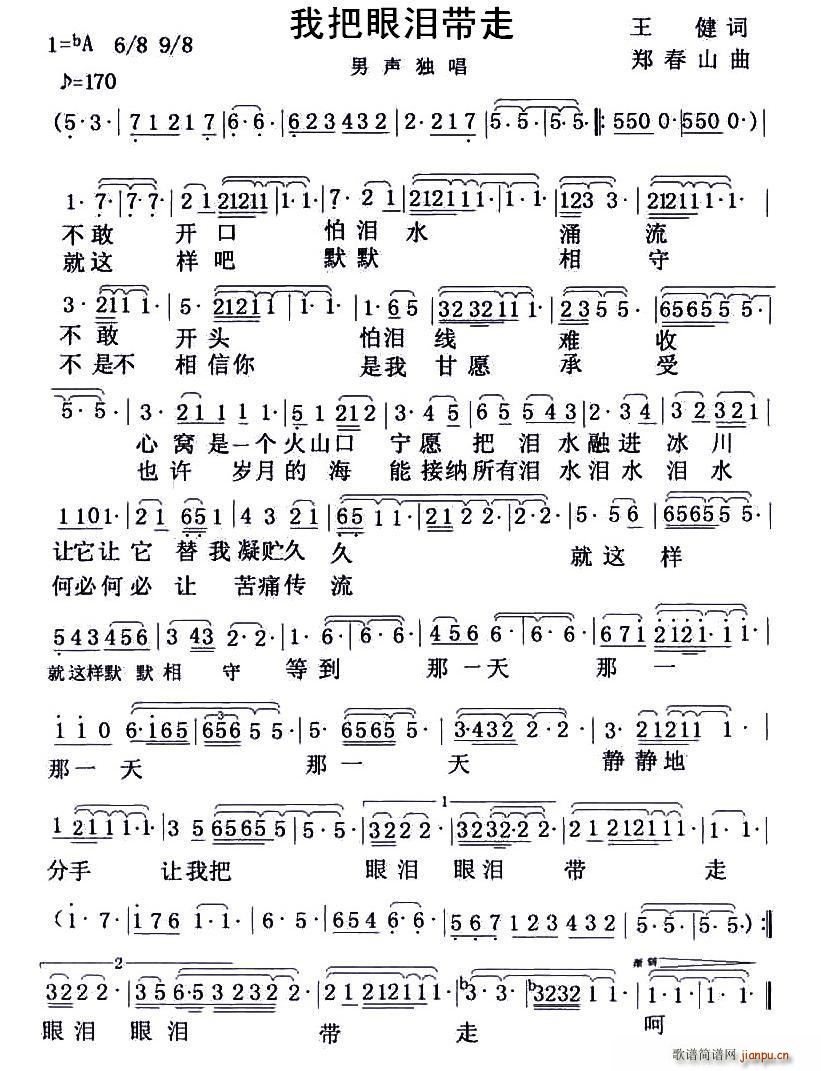 我把眼泪带走
王 健 词
1=♭A 6/8 9/8
男声独唱
郑春山 曲
♪=170
(5·3·|71217|6·6·|623432|2·217|5·5·|5·5·‖:550 0·|550 0·)|
1·7·|7·7·|21 21211|1·1·|7·21|212111|1·1·|123 3·|212111·1·|
不敢 开口 怕泪水 涌流
就这 样吧 默默 相守
3·2111·|5·21211|1·1·|1·65|323211|1·1·|235 5·|656555·|
不敢 开头 怕泪线 难收
不是不 相信你 是我甘愿 承受
5·5·|3·21 1 1·|5 1 212|3·45|65 5 54|2·34|32 321|
心窝是一个火山口 宁愿把泪水融进冰川
也许 岁月的海 能接纳所有泪水泪水泪水
1101·|21 651|43 21|65 11·|2122·|2·2·|5·56|656555·|
让它让它替我凝贮久久 就这样
何必何必让 苦痛传流
543456|3 43 2·2·|1·6·|6·6·|4566·|6·6·|671 2121·11·|
就这样默默相守 等到 那一天 那一
110 6·165|65655·|5·65655·|3·4322·2·|3·212111·|
那一天 那一天 静静地
121111·|3 5 65655|5·5·|32222·|3232·22·|21212111|1·1·|
分手 让我把 眼泪眼泪带走
(1·7·|176 1·1·|6·5·|654 6·6·|567123432|5·5·|5·5·):‖
2
32222·|356·53232 2·|2·2·|21212111|♭3·3·|♭323211·|1·1·|1·‖
渐弱
眼泪 眼泪 带走 呵
歌谱简谱网 jianpu.cn